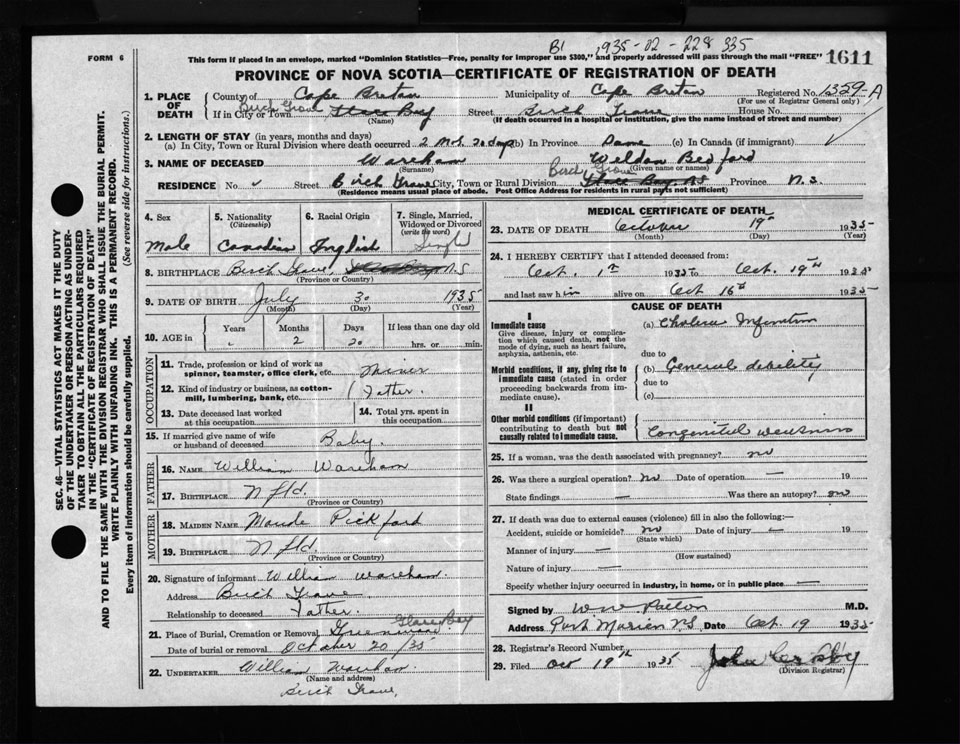 B1 1935-02-228335
FORM 6 This form if placed in an envelope, marked "Dominion Statistics—Free, penalty for improper use $300," and properly addressed will pass through the mail "FREE" 1611
PROVINCE OF NOVA SCOTIA—CERTIFICATE OF REGISTRATION OF DEATH
1. PLACE OF DEATH County of Cape Breton Municipality of Cape Breton Registered No. 1359-A
(For use of Registrar General only)
If in City or Town Birch Grove Glace Bay Street Birch Grove House No.
(Name) (If death occurred in a hospital or institution, give the name instead of street and number)
2. LENGTH OF STAY (in years, months and days)
(a) In City, Town or Rural Division where death occurred 2 Mos. 20 days (b) In Province Same (c) In Canada (if immigrant)
3. NAME OF DECEASED Wareham Weldon Bedford
(Surname) (Given name or names)
RESIDENCE No. Street Birch Grove City, Town or Rural Division Birch Grove Glace Bay, N.S. Province N.S.
(Residence means usual place of abode. Post Office Address for residents in rural parts not sufficient)
4. Sex 5. Nationality (Citizenship) 6. Racial Origin 7. Single, Married, Widowed or Divorced (write the word)
Male Canadian English Single
8. BIRTHPLACE Birch Grove, N.S.
(Province or Country)
9. DATE OF BIRTH July 30 1935
(Month) (Day) (Year)
10. AGE in Years Months Days If less than one day old
2 20 hrs. or min.
OCCUPATION
11. Trade, profession or kind of work as spinner, teamster, office clerk, etc. Miner
12. Kind of industry or business, as cotton-mill, lumbering, bank, etc. Father
13. Date deceased last worked at this occupation 14. Total yrs. spent in this occupation
15. If married give name of wife or husband of deceased Baby
FATHER
16. NAME William Wareham
17. BIRTHPLACE Nfld.
(Province or Country)
MOTHER
18. MAIDEN NAME Maude Pickford
19. BIRTHPLACE Nfld.
(Province or Country)
20. Signature of informant William Wareham
Address Birch Grove
Relationship to deceased Father.
21. Place of Burial, Cremation or Removal Greenwood Glace Bay
Date of burial or removal October 20/35
22. UNDERTAKER William Wareham
(Name and address)
Birch Grove,
MEDICAL CERTIFICATE OF DEATH
23. DATE OF DEATH October 19th 1935
(Month) (Day) (Year)
24. I HEREBY CERTIFY that I attended deceased from:
Oct. 1st 1935 to Oct. 19th 1935
and last saw him alive on Oct 16th 1935
CAUSE OF DEATH
I
Immediate cause (a) Cholera Infantum
Give disease, injury or complication which caused death, not the mode of dying, such as heart failure, asphyxia, asthenia, etc.
due to
Morbid conditions, if any, giving rise to immediate cause (stated in order proceeding backwards from immediate cause).
(b) General debility
due to
(c)
II
Other morbid conditions (if important) contributing to death but not causally related to immediate cause.
Congenital weakness
25. If a woman, was the death associated with pregnancy? no
26. Was there a surgical operation? No Date of operation — 19
State findings — Was there an autopsy? no
27. If death was due to external causes (violence) fill in also the following:—
Accident, suicide or homicide? no Date of injury — 19
(State which)
Manner of injury —
(How sustained)
Nature of injury —
Specify whether injury occurred in industry, in home, or in public place —
Signed by W W Patton M.D.
Address Port Morien NS Date Oct. 19 1935
28. Registrar's Record Number
29. Filed Oct 19th 1935 John Crosby
(Division Registrar)
SEC. 46—VITAL STATISTICS ACT MAKES IT THE DUTY
OF THE UNDERTAKER OR PERSON ACTING AS UNDER-
TAKER TO OBTAIN ALL THE PARTICULARS REQUIRED
IN THE "CERTIFICATE OF REGISTRATION OF DEATH"
AND TO FILE THE SAME WITH THE DIVISION REGISTRAR WHO SHALL ISSUE THE BURIAL PERMIT.
WRITE PLAINLY WITH UNFADING INK. THIS IS A PERMANENT RECORD.
Every item of information should be carefully supplied. (See reverse side for instructions.)